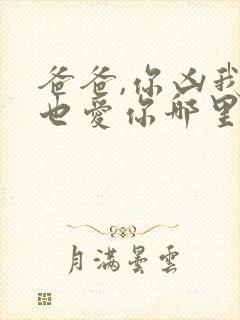 爸爸,你凶我
也爱你哪里
月满昙云